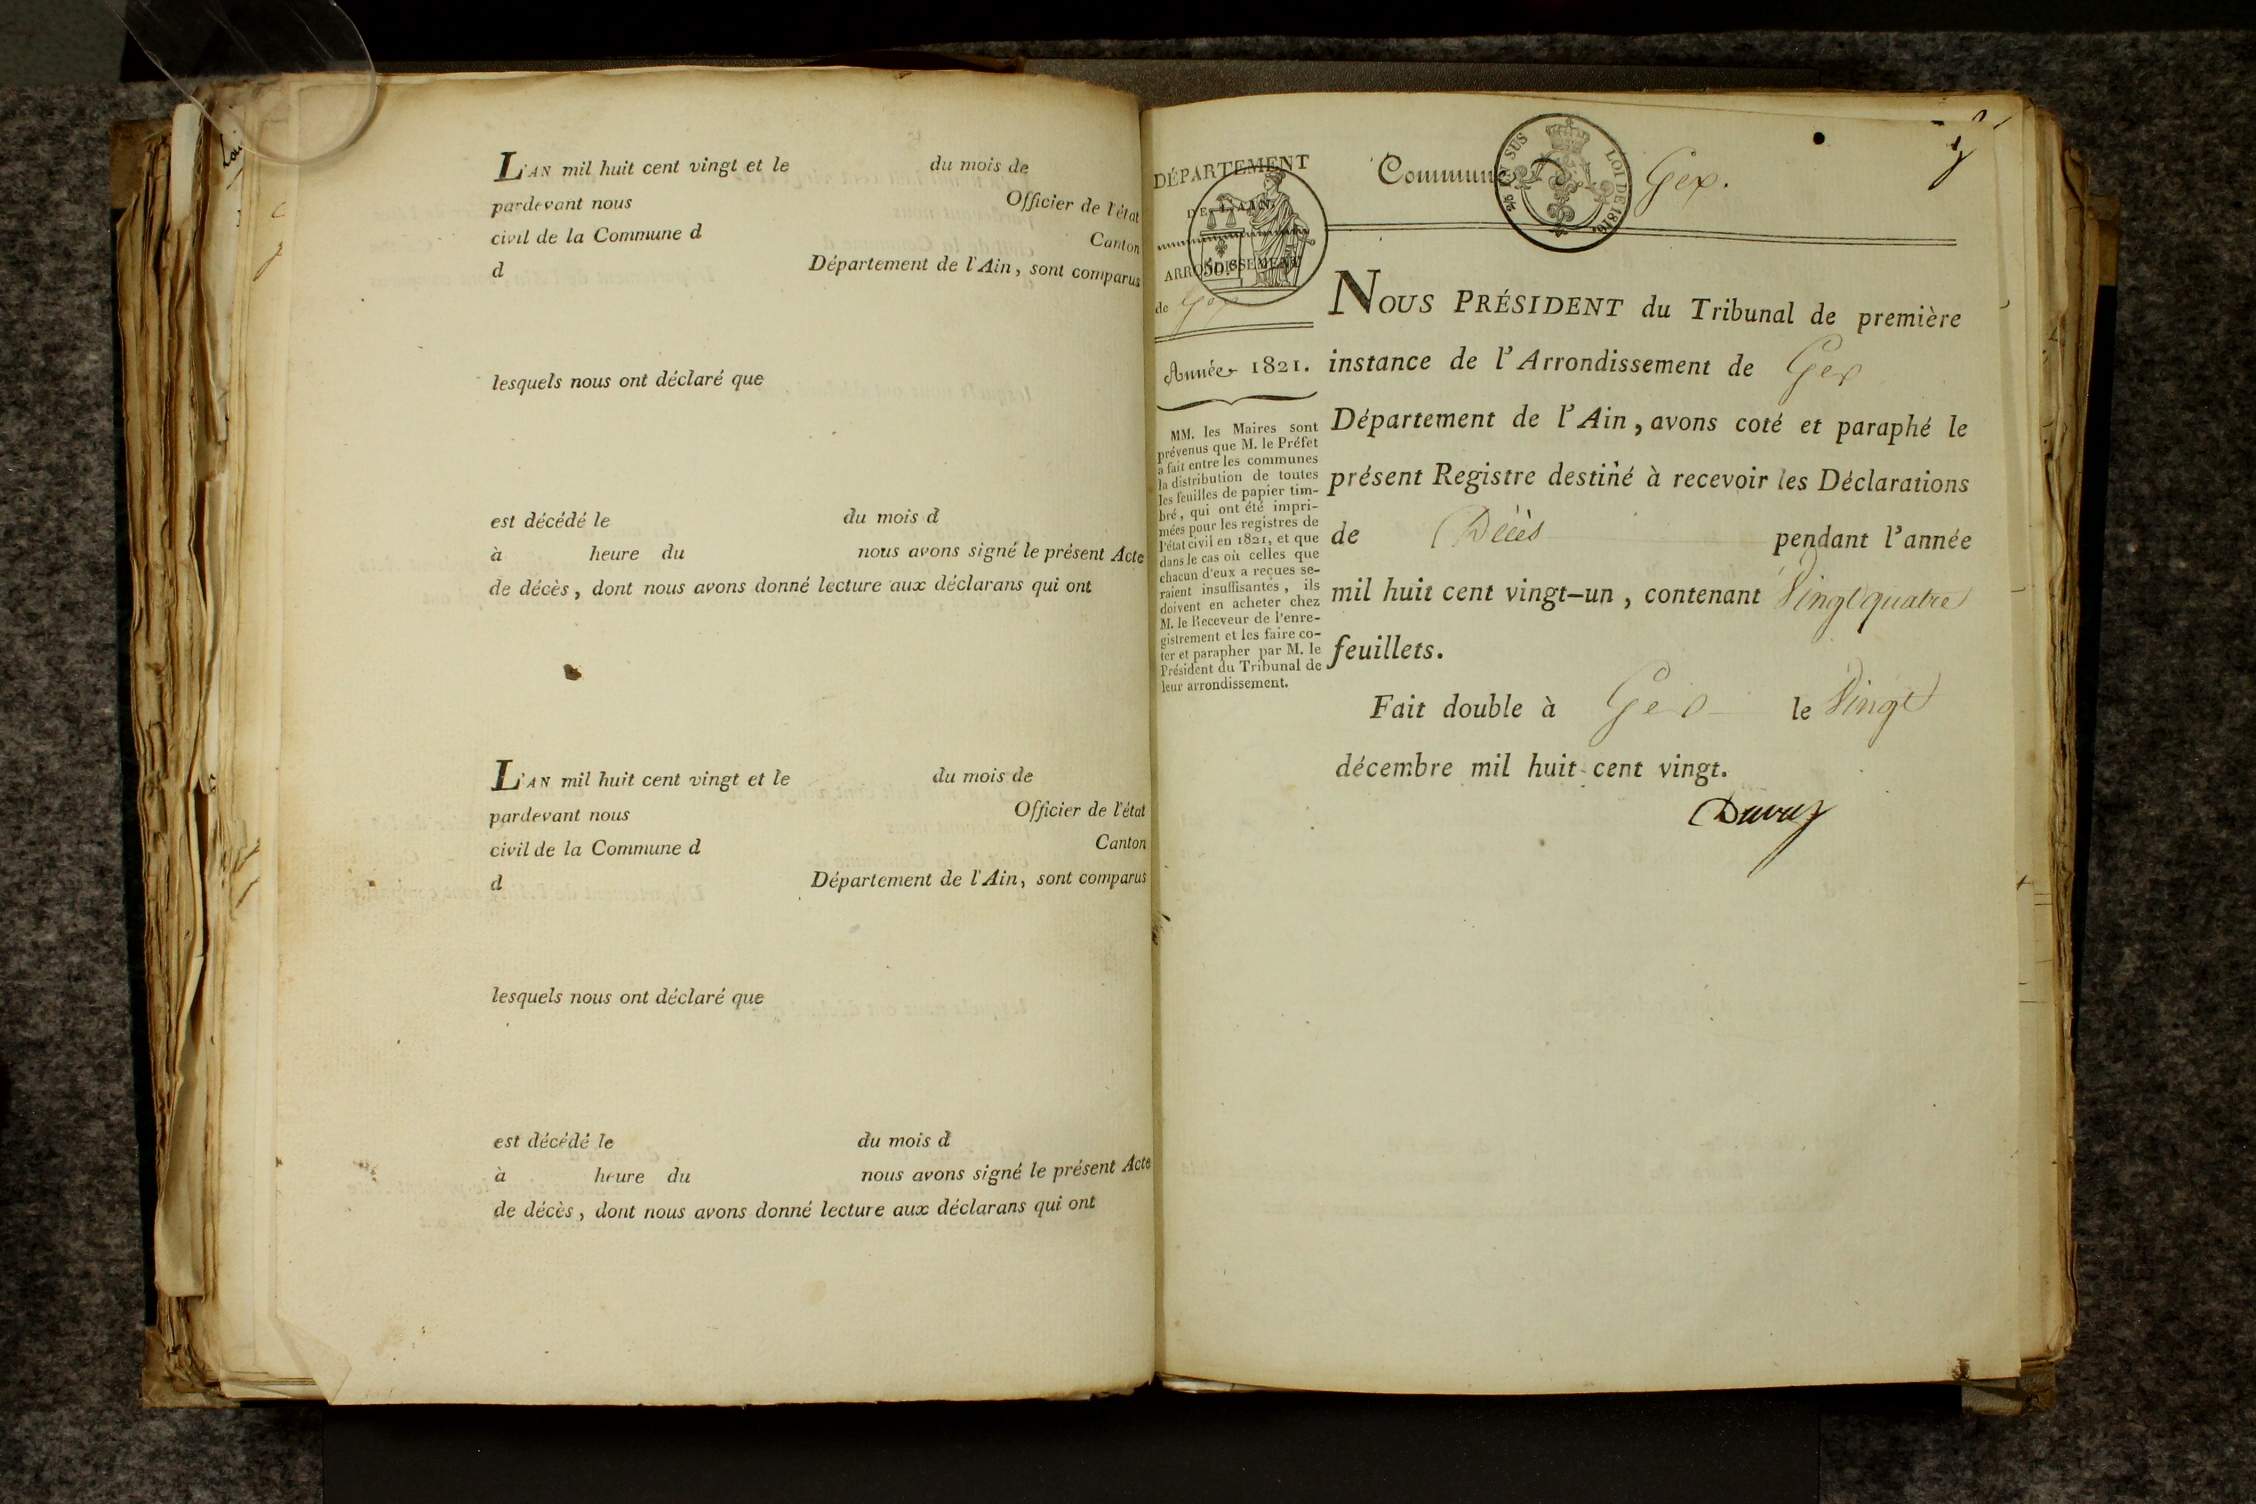 L'AN mil huit cent vingt et le du mois de
pardevant nous Officier de l'état
civil de la Commune d Canton
d Département de l'Ain, sont comparus
lesquels nous ont déclaré que
est décédé le du mois d
à heure du nous avons signé le présent Acte
de décès, dont nous avons donné lecture aux déclarans qui ont
L'AN mil huit cent vingt et le du mois de
pardevant nous Officier de l'état
civil de la Commune d Canton
d Département de l'Ain, sont comparus
lesquels nous ont déclaré que
est décédé le du mois d
à heure du nous avons signé le présent Acte
de décès, dont nous avons donné lecture aux déclarans qui ont
DÉPARTEMENT
DE L'AIN.
ARRONDISSEMENT
de Gex
Année 1821.
MM. les Maires sont
prévenus que M. le Préfet
a fait entre les communes
la distribution de toutes
les feuilles de papier tim-
bré, qui ont été impri-
mées pour les registres de
l'état civil en 1821, et que
dans le cas où celles que
chacun d'eux a reçues se-
raient insuffisantes, ils
doivent en acheter chez
M. le Receveur de l'enre-
gistrement et les faire co-
ter et parapher par M. le
Président du Tribunal de
leur arrondissement.
Commune Gex.
EN SUS LOI DE 1816.
NOUS PRÉSIDENT du Tribunal de première
instance de l'Arrondissement de Gex
Département de l'Ain, avons coté et paraphé le
présent Registre destiné à recevoir les Déclarations
de Décès pendant l'année
mil huit cent vingt-un, contenant Vingt quatre
feuillets.
Fait double à Gex le Vingt
décembre mil huit cent vingt.